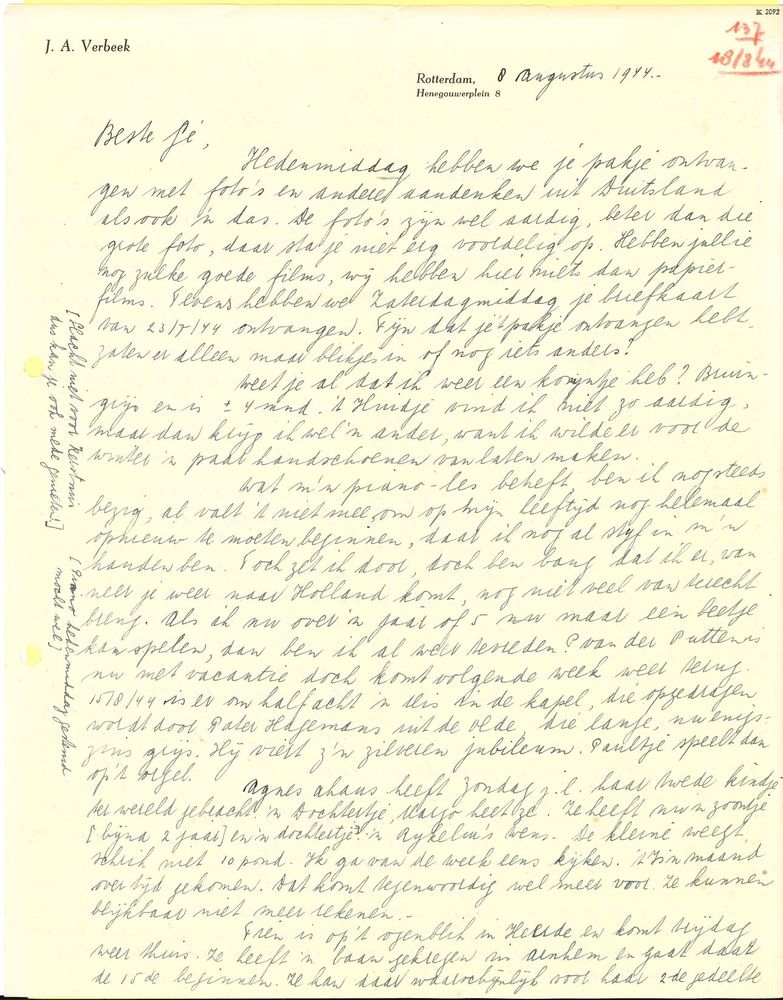 K 2092
137
18/8/44
J. A. Verbeek
Rotterdam, 8 Augustus 1944.-
Henegouwerplein 8
Beste Gé,
Hedenmiddag hebben we je pakje ontvan-
gen met foto's en andere aandenken uit Duitsland
alsook 'n das. De foto's zijn wel aardig, beter dan die
grote foto, daar sta je niet erg voordelig op. Hebben jullie
nog zulke goede films, wij hebben hier niets dan papier-
films. Tevens hebben we Zaterdagmiddag je briefkaart
van 23/7/44 ontvangen. Fijn dat je 't pakje ontvangen hebt,
zaten er alleen maar blikjes in of nog iets anders?
Weet je al dat ik weer een konijntje heb? Bruin-
grijs en is ± 4 mnd. 't Huidje vind ik niet zo aardig,
maar dan krijg ik wel 'n ander, want ik wilde er voor de
winter 'n paar handschoenen van laten maken.
Wat m'n piano-les betreft, ben ik nog steeds
bezig, al valt 't niet mee, om op mijn leeftijd nog helemaal
opnieuw te moeten beginnen, daar ik nog al stijf in m'n
handen ben. Toch zet ik door, doch ben bang dat ik er, wan-
neer je weer naar Holland komt, nog niet veel van terecht
breng. Als ik nu over 'n jaar of 5 nu maar een beetje
kan spelen, dan ben ik al weer tevreden. P van der Putten is
nu met vacantie doch komt volgende week weer terug.
15/8/44 is er om half acht 'n Mis in de kapel, die opgedragen
wordt door Pater Hagemans uit de , die lange, nu enigs-
zins grijs. Hij viert z'n zilveren jubileum. Paultje speelt dan
op 't orgel.
Agnes ahaus heeft Zondag j.l. haar twede kindje
ter wereld gebracht 'n Dochtertje, heet ze. Ze heeft nu 'n zoontje
[bijna 2 jaar] en 'n dochtertje. 'n wens. De kleine weegt
schrik niet 10 pond. Ik ga van de week eens kijken. 't Is 'n maand
over tijd gekomen. Dat komt tegenwoordig wel meer voor. Ze kunnen
blijkbaar niet meer rekenen.-
Fien is op 't ogenblik in Heerde en komt vrijdag
weer thuis. Ze heeft 'n baan gekregen in Arnhem en gaat daar
de 15de beginnen. Ze kan daar waarschijnlijk voor haar 2de gedeelte
[Slacht met voor Kerstmis
dus kan je ook mede genieten!]
[Piano hedenmiddag gestemd
mocht wel]